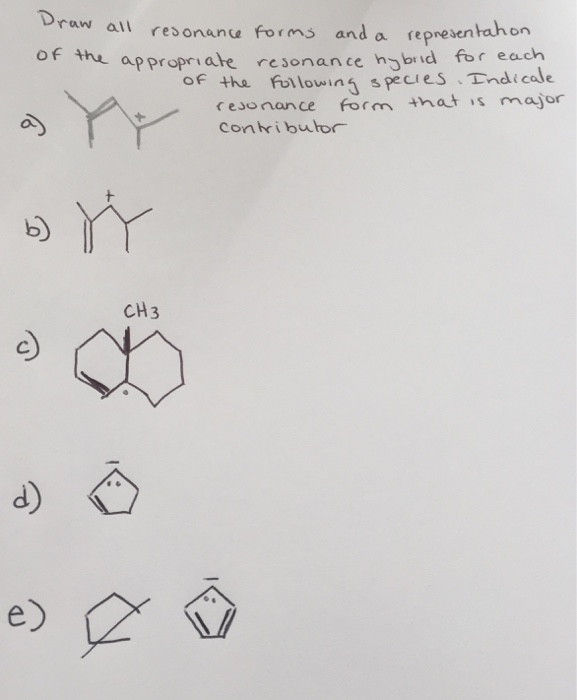 Draw all resonance forms and a representation
of the appropriate resonance hybrid for each
of the following species. Indicate
resonance form that is major
contributor
a) +
b) +
CH3
c)
d)
e)